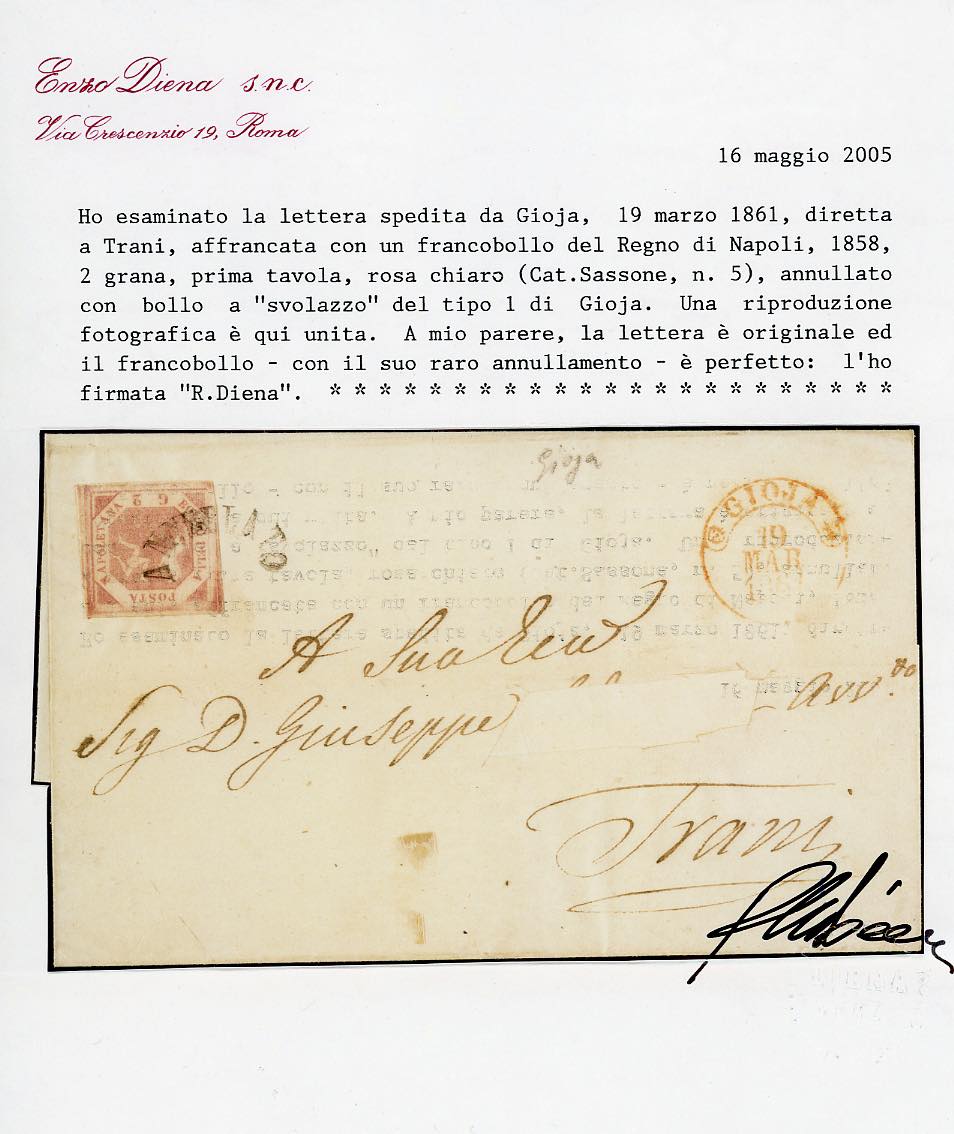 Enzo Diena s.n.c.
Via Crescenzio 19, Roma
16 maggio 2005
Ho esaminato la lettera spedita da Gioja, 19 marzo 1861, diretta
a Trani, affrancata con un francobollo del Regno di Napoli, 1858,
2 grana, prima tavola, rosa chiaro (Cat.Sassone, n. 5), annullato
con bollo a "svolazzo" del tipo 1 di Gioja. Una riproduzione
fotografica è qui unita. A mio parere, la lettera è originale ed
il francobollo - con il suo raro annullamento - è perfetto: l'ho
firmata "R.Diena". * * * * * * * * * * * * * * * * * * * * * * *
Gioja
G 2
POSTA
NAPOLETANA
GIOJA
19
MAR
A Sua Ecc
Sig D. Giuseppe
Avv.to
Trani